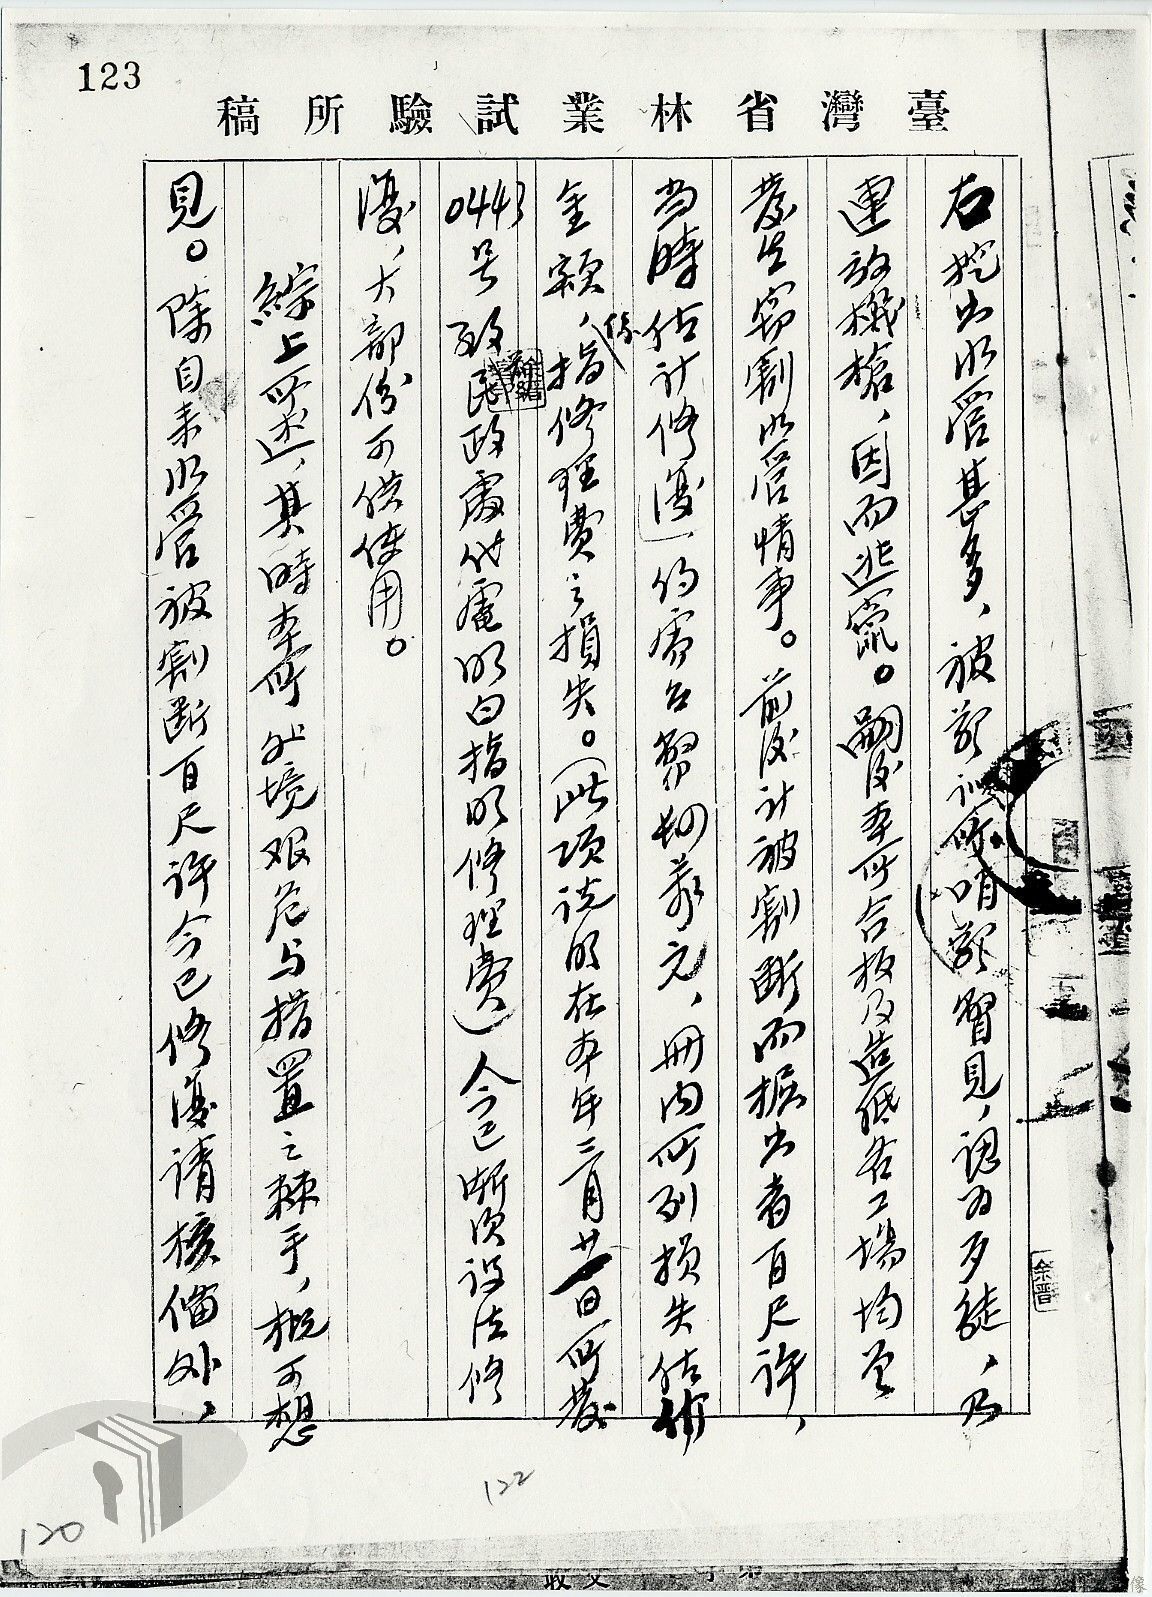 123
臺灣省林業試驗所稿
右挖出水管甚多，被警訓所哨警瞥見，認為歹徒，乃
連放機槍，因而逃竄。嗣後本所合板及造紙各工場均曾
發生窃割水管情事。前後計被割斷而掘出者百尺許，
当時估計修復，約需台幣
元，册內所列損失估價
金額，係指修理費之損失。（此項說明在本年三月廿日所發
0443号致民政處代電明白指明修理費）今已漸次設法修
復，大部份可供使用。
綜上所述，其時本所处境艰危与措置之棘手，概可想
見。除自来水管被割断百尺許今已修復請核備外，
余晋
122
120
收文